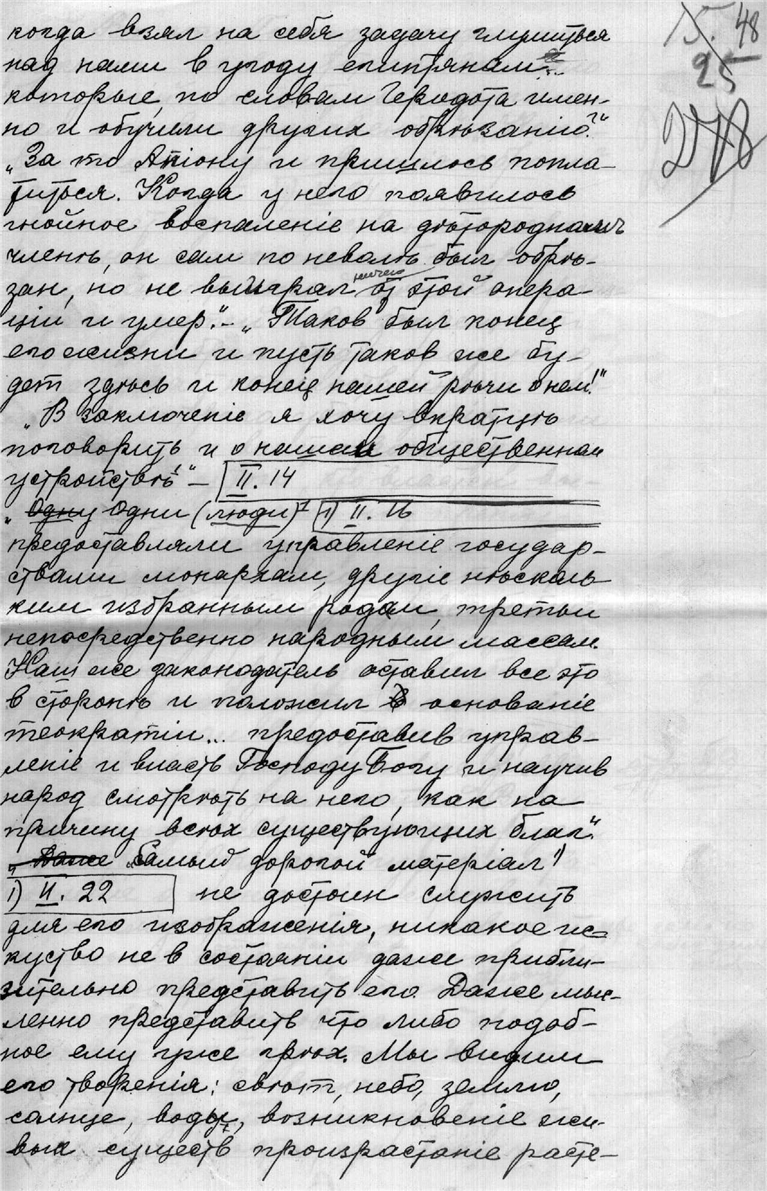 48
25
278
когда взял на себя задачу глумиться
над нами в угоду египтянам...
которые, по словам Геродота имен-
но и обучили других обрѣзанію?"
„За то Апіону и пришлось попла-
титься. Когда у него появилось
гнойное воспаленіе на дѣтородном
членѣ, он сам по неволѣ был обрѣ-
зан, но не выиграл ничего от этой опера-
ціи и умер." – „Таков был конец
его жизни и пусть таков же бу-
дет здѣсь и конец нашей рѣчи о нем!"
„В заключеніе я хочу вкратцѣ
поговорить и о нашем общественном
устройствѣ!" – II. 14
„Одну Одни (люди)¹ 1) II. 16
предоставляли управленіе государ-
ствами монархам, другіе нѣсколь-
ким избранным родам, третьи
непосредственно народным массам.
Наш же законодатель оставил все это
в сторонѣ и положил в основаніе
теократіи... предоставив управ-
леніе и власть Господу Богу и научив
народ смотрѣть на него, как на
причину всѣх существующих благ".
„Даже „Самый дорогой матеріал¹)
1) II. 22 не достоин служить
для его изображенія, никакое ис=
куство не в состояніи даже прибли-
зительно представить его. Даже мыс-
ленно представить что либо подоб-
ное ему уже грѣх. Мы видим
его творенія: свѣт, небо, землю,
солнце, воды, возникновеніе жи-
вых существ произрастаніе расте-